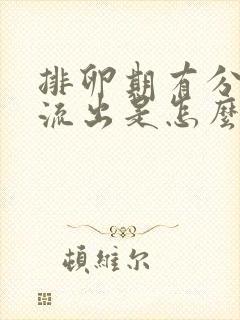 排卵期有分
流出是怎麼
頓維尔